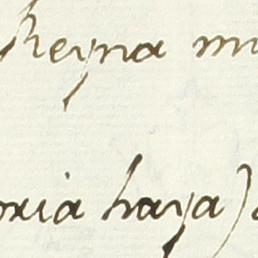 Reyna
oria haya)